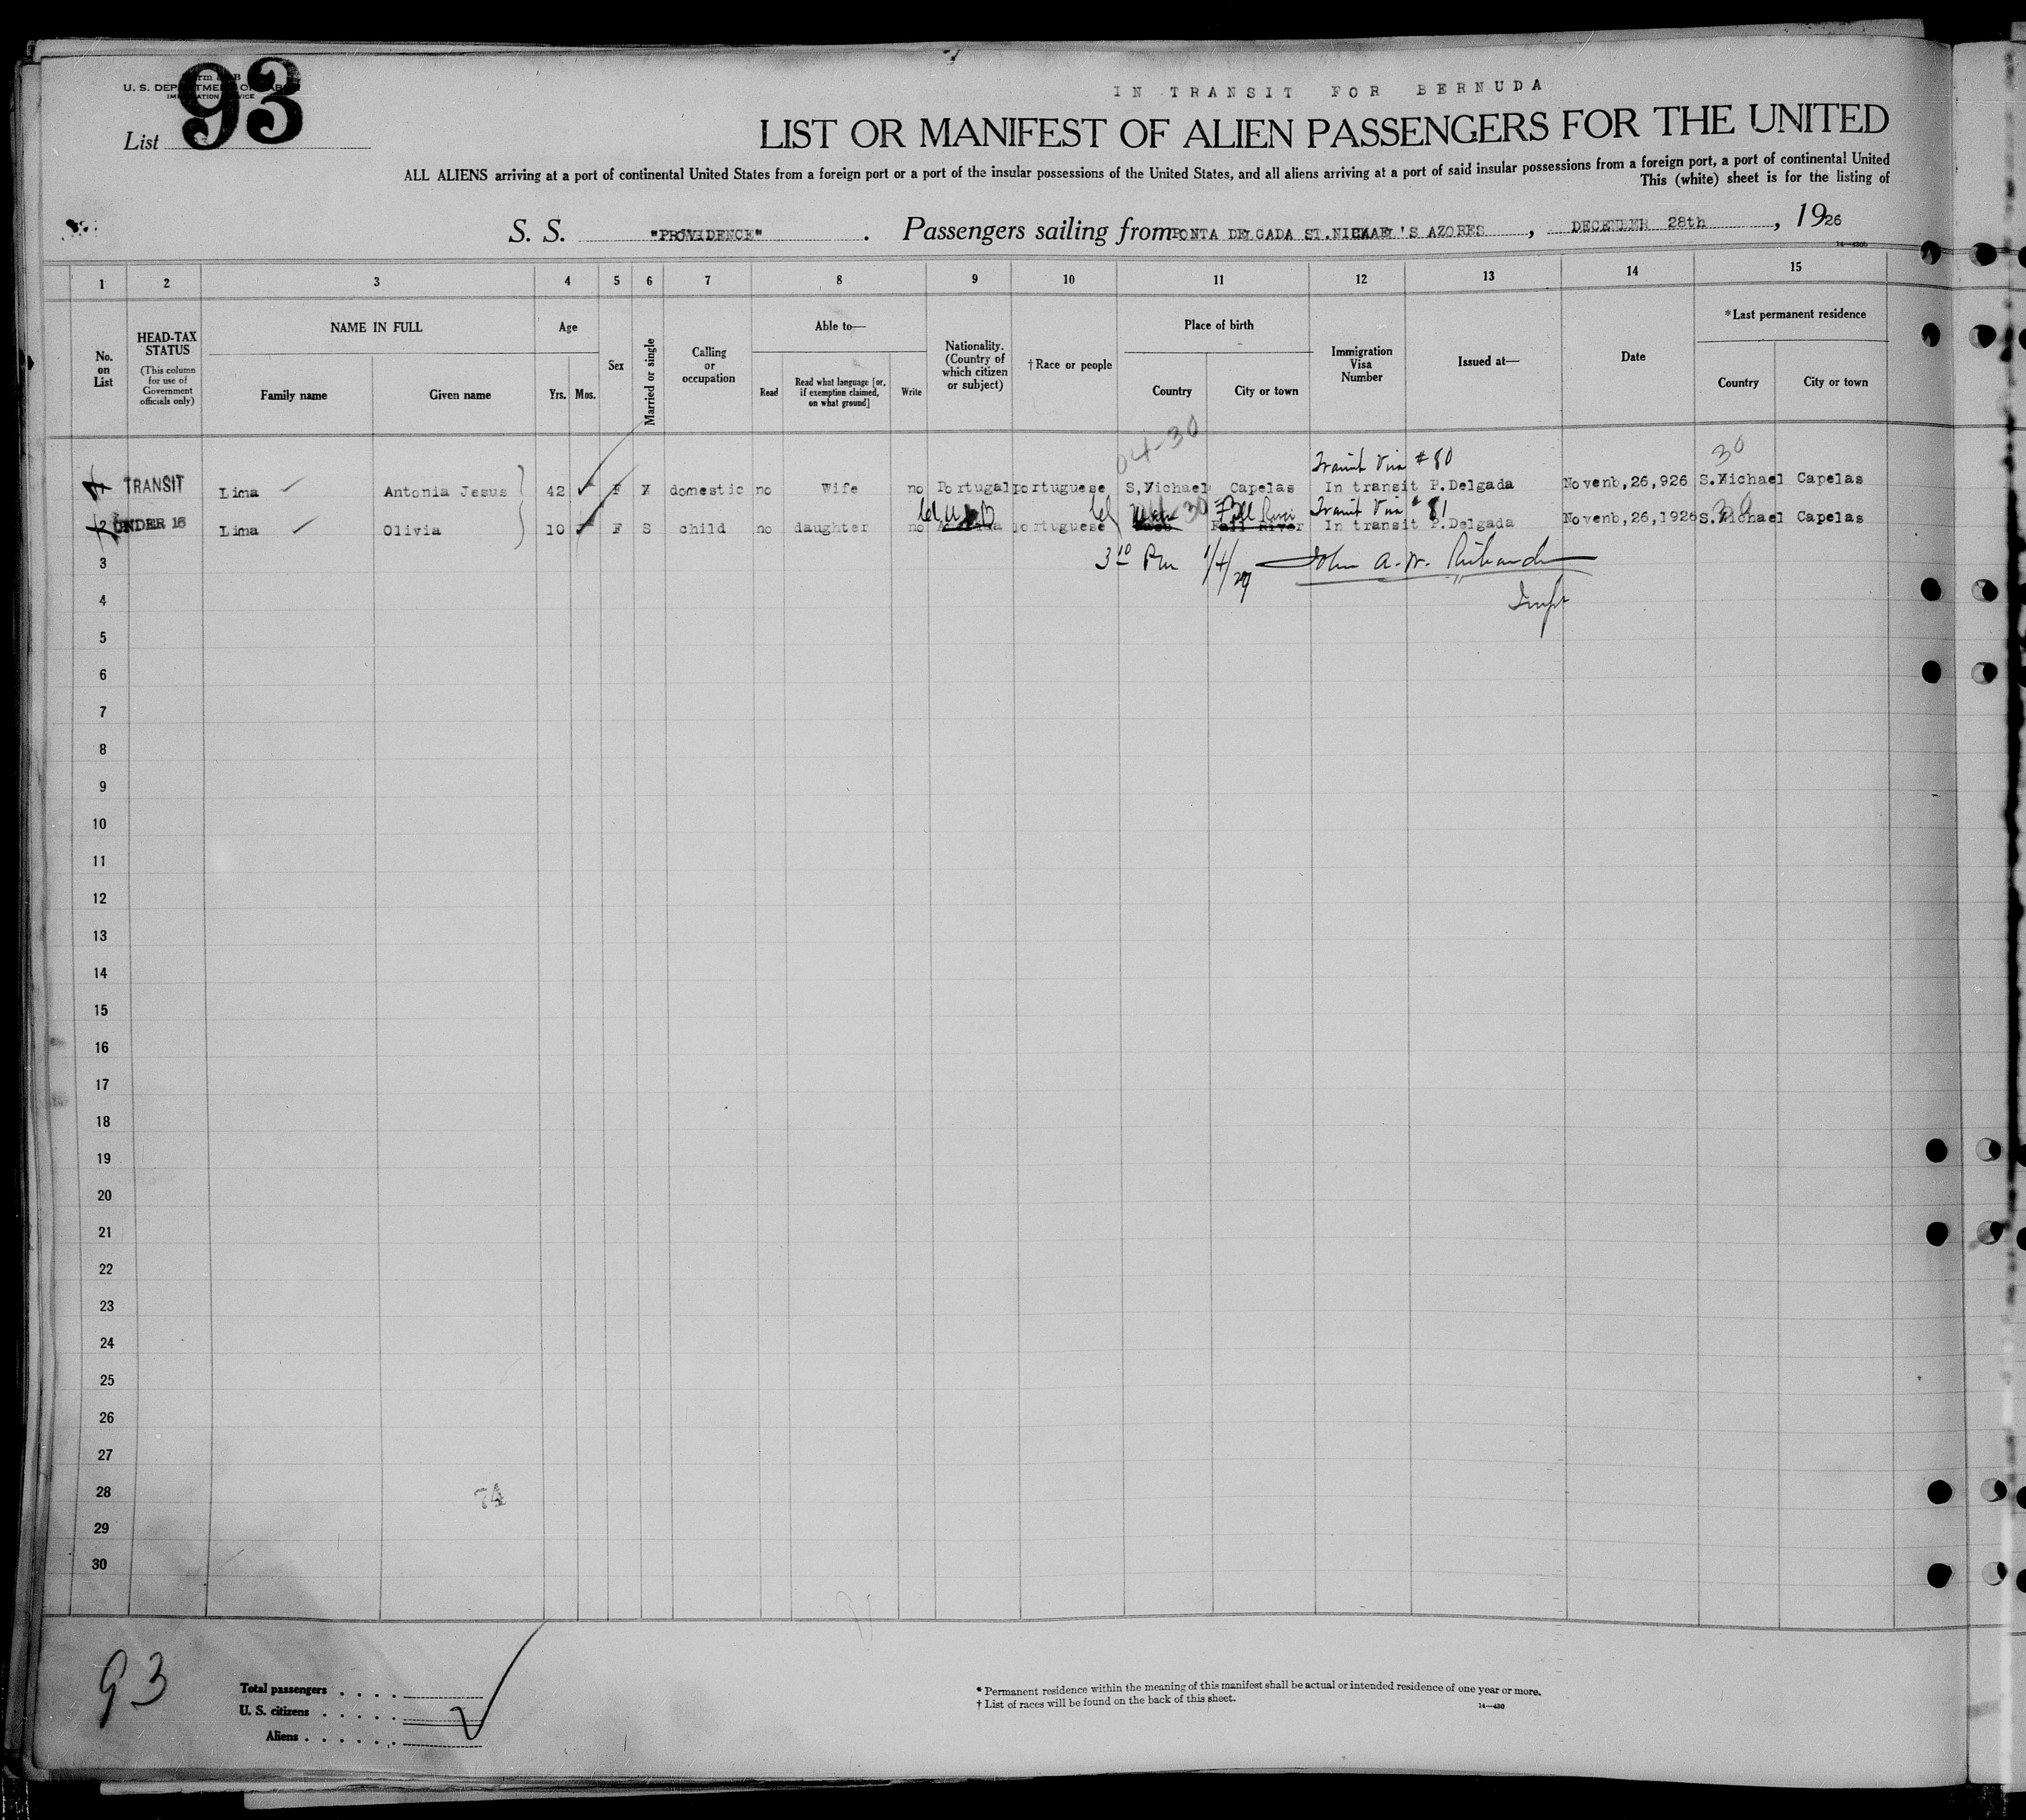 93
Form B
U. S. DEPARTMENT OF LABOR
IMMIGRATION SERVICE
List
IN TRANSIT FOR BERNUDA
LIST OR MANIFEST OF ALIEN PASSENGERS FOR THE UNITED
ALL ALIENS arriving at a port of continental United States from a foreign port or a port of the insular possessions of the United States, and all aliens arriving at a port of said insular possessions from a foreign port, a port of continental United
This (white) sheet is for the listing of
S. S. "PROVIDENCE". Passengers sailing from PONTA DELGADA ST.NICHAEL'S AZORES, DECEMBER 28th, 1926
1 2 3 4 5 6 7 8 9 10 11 12 13 14 15
No. on List
HEAD-TAX STATUS
(This column for use of Government officials only)
NAME IN FULL
Family name Given name
Age
Yrs. Mos.
Sex
Married or single
Calling or occupation
Able to—
Read
Read what language [or, if exemption claimed, on what ground]
Write
Nationality. (Country of which citizen or subject)
†Race or people
Place of birth
Country City or town
Immigration Visa Number
Issued at—
Date
*Last permanent residence
Country City or town
04-30
Transit Visa #80
30
1 TRANSIT Lima Antonia Jesus 42 F M domestic no Wife no Portugal portuguese S,Michael Capelas In transit P.Delgada Novemb,26,926 S.Michael Capelas
Fall River Transit Visa #81
2 UNDER 16 Lima Olivia 10 F S child no daughter no portuguese Fall River In transit P.Delgada Novemb,26,1926 S.Michael Capelas
3 3 10 Pm 1/4/27 John A. W. Richards
4 Insp
5
6
7
8
9
10
11
12
13
14
15
16
17
18
19
20
21
22
23
24
25
26
27
28 74
29
30
93
Total passengers . . . .
U. S. citizens . . . . .
Aliens . . . . . .
* Permanent residence within the meaning of this manifest shall be actual or intended residence of one year or more.
† List of races will be found on the back of this sheet.
14—430